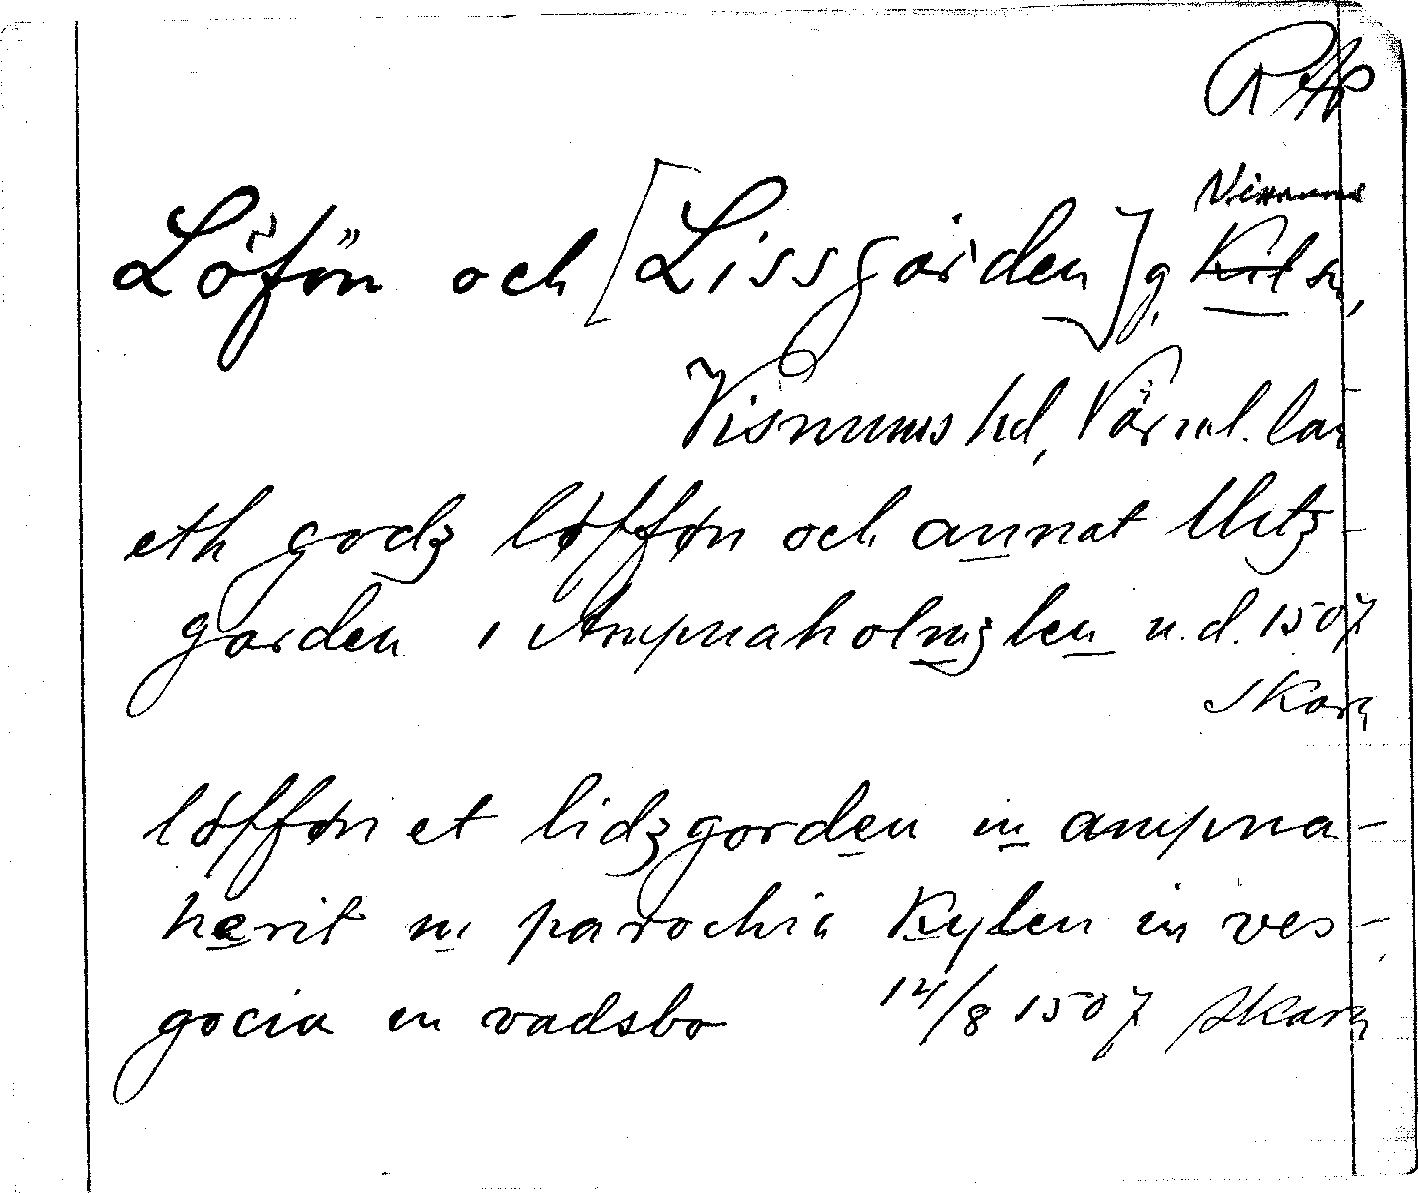 RAP
Visnums
Löfön och [Lissgården] g, Kil sn,
Visnums hd, Värml. län
eth godz løfføn och annat litz-
garden i Ampnaholmz len u.d. 1507
Skara
løfføn et lidzgorden in ampna-
hærit in parochia Kylen in ves-
gocia en vadsbo 14/8 1507 Skara